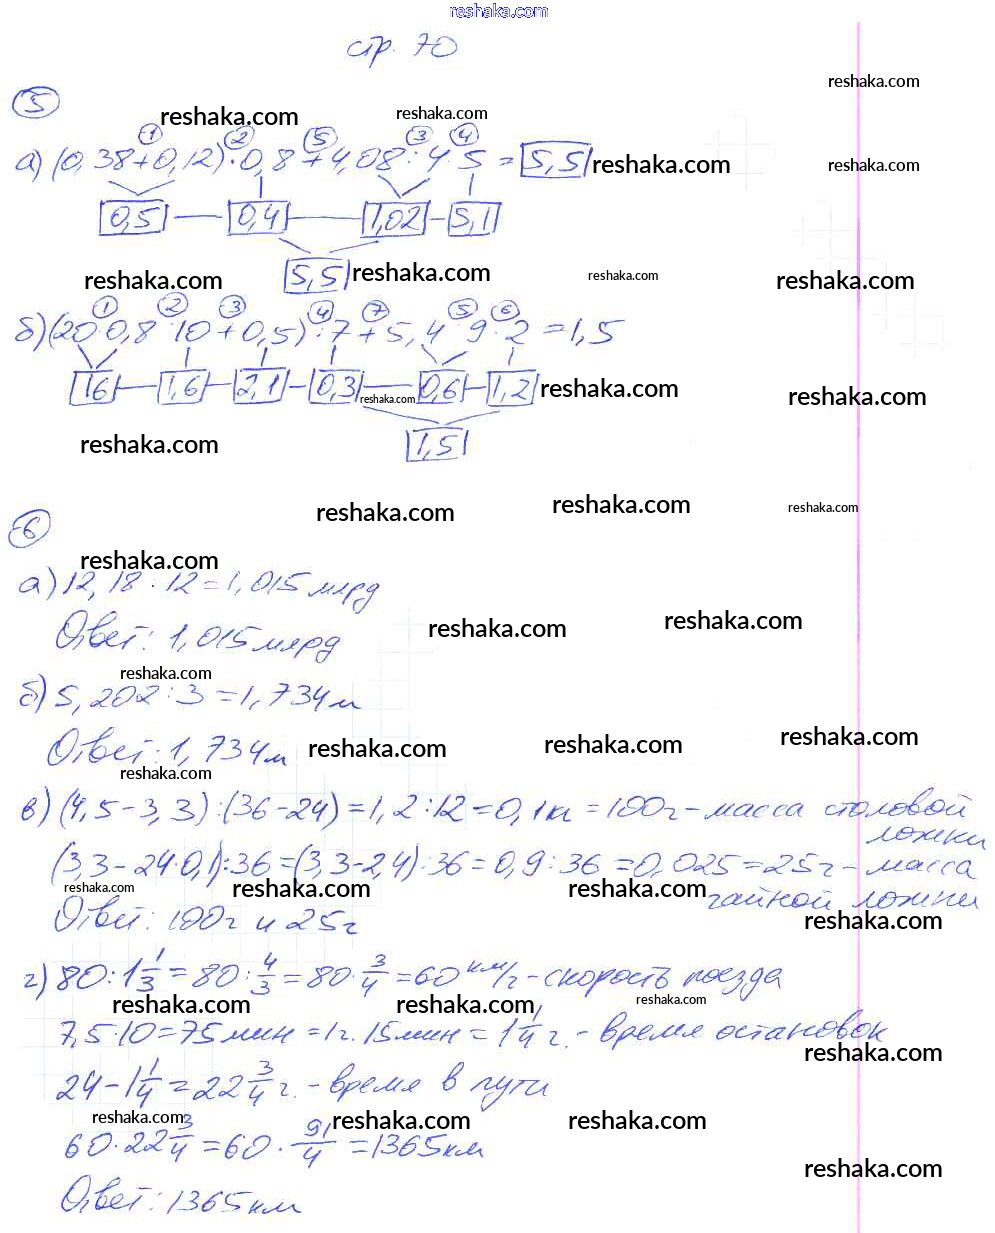 reshaka.com
стр. 70
reshaka.com
5
reshaka.com reshaka.com
1 2 5 3 4
а) (0,38+0,12)·0,8+4,08:4·5 = 5,5 reshaka.com reshaka.com
0,5 0,4 1,02 5,1
5,5 reshaka.com reshaka.com reshaka.com reshaka.com
1 2 3 4 7 5 6
б) (20·0,8:10+0,5):7+5,4:9·2=1,5
16 1,6 2,1 0,3 0,6 1,2 reshaka.com reshaka.com
reshaka.com
reshaka.com 1,5
reshaka.com reshaka.com reshaka.com
6
reshaka.com
а) 12,18:12=1,015 млрд
reshaka.com reshaka.com
Ответ: 1,015 млрд
reshaka.com
б) 5,202:3=1,734 м
Ответ: 1,734 м reshaka.com reshaka.com reshaka.com
reshaka.com
в) (4,5-3,3):(36-24)=1,2:12=0,1 кг=100г-масса столовой
ложки
(3,3-24·0,1):36=(3,3-2,4):36=0,9:36=0,025=25г-масса
чайной ложки
reshaka.com reshaka.com reshaka.com
Ответ: 100г и 25г reshaka.com
г) 80:1 1/3=80:4/3=80·3/4=60 км/ч-скорость поезда
reshaka.com reshaka.com reshaka.com
7,5·10=75 мин=1ч.15мин=1 1/4 ч.-время остановок
reshaka.com
24-1 1/4=22 3/4 ч.-время в пути
reshaka.com reshaka.com reshaka.com
60·22 3/4=60·91/4=1365 км
reshaka.com
Ответ: 1365 км